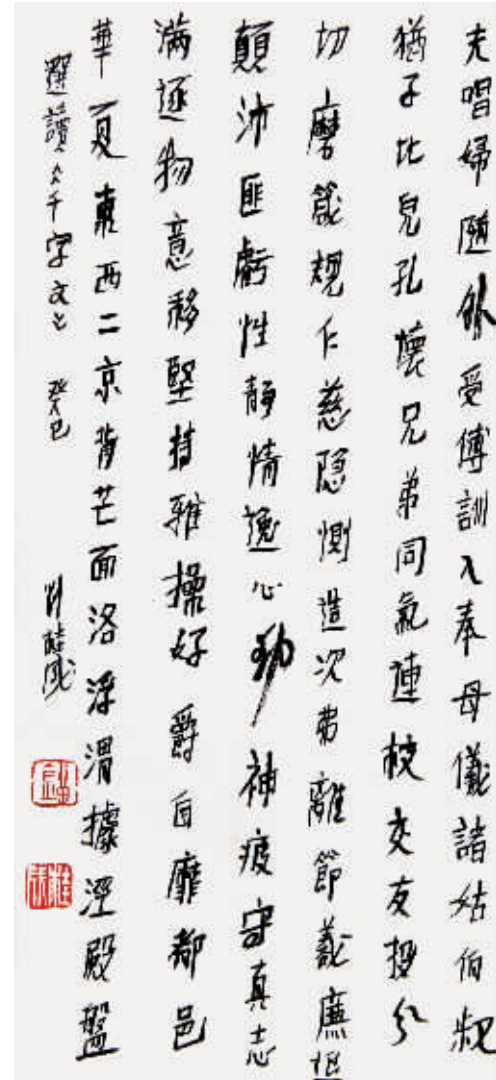 夫唱婦隨外受傅訓入奉母儀諸姑伯叔
猶子比兒孔懷兄弟同氣連枝交友投分
切磨箴規仁慈隐惻造次弗離節義廉退
顛沛匪虧性靜情逸心動神疲守真志
滿逐物意移堅持雅操好爵自靡都邑
華夏東西二京背芒面洛浮渭據涇殿盤
選讀《千字文》 癸巳